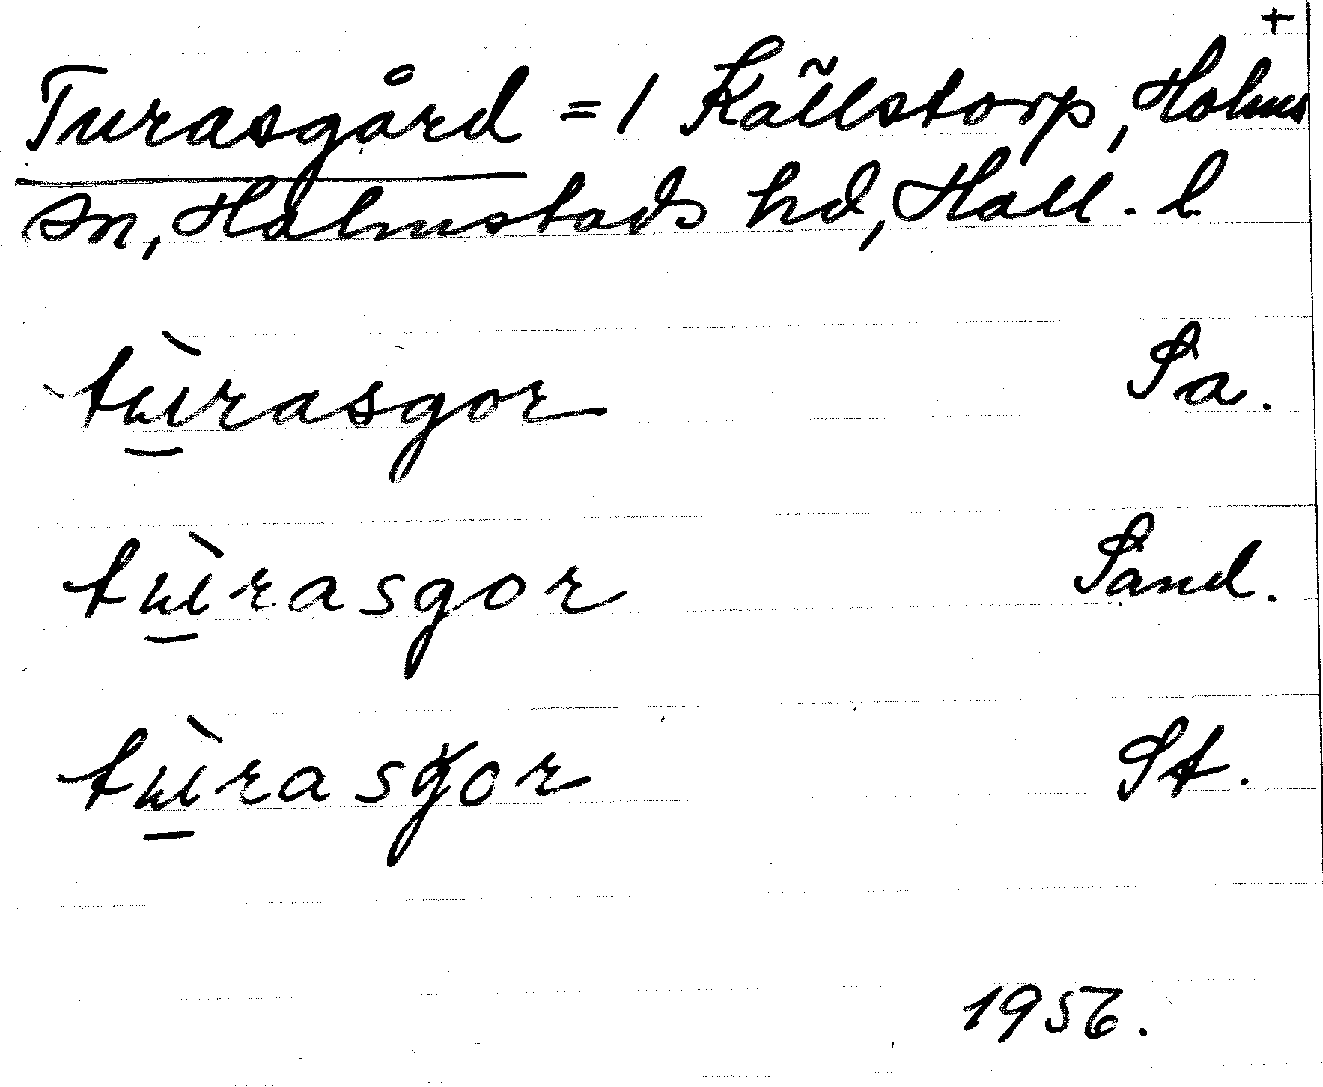 +
Turasgård = 1 Källstorp, Holms
sn, Halmstads hd, Hall. l
tùrasgor Sa.
tùrasgor Sand.
tùrasgor St.
1956.